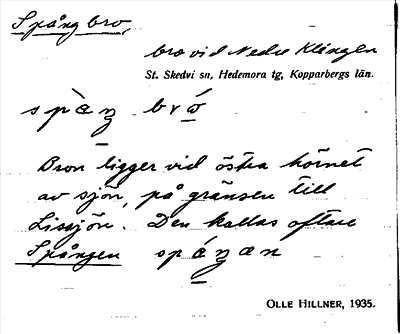 Spångbro,
bro vid Nedre Klingen
St. Skedvi sn, Hedemora tg, Kopparbergs län.
Bron ligger vid östra hörnet
av sjön, på gränsen till
Lissjön. Den kallas oftare
Spången
OLLE HILLNER, 1935.